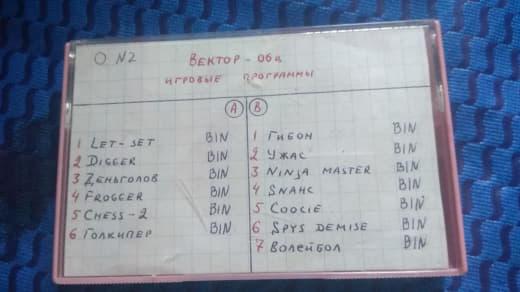 O. N2
ВЕКТОР-06ц
ИГРОВЫЕ ПРОГРАММЫ
A B
1 LET-SET BIN
2 DIGGER BIN
3 ДЕНЬГОЛОВ BIN
4 FROGGER BIN
5 CHESS-2 BIN
6 ГОЛКИПЕР BIN
1 ГИБОН BIN
2 УЖАС BIN
3 NINJA MASTER BIN
4 SNAHC BIN
5 COOCIE BIN
6 SPYS DEMISE BIN
7 ВОЛЕЙБОЛ BIN